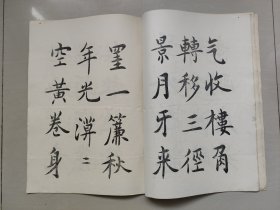 气收樓角
轉移三徑
景月牙來
罣一簾秋
年光漠〻
空黃卷身